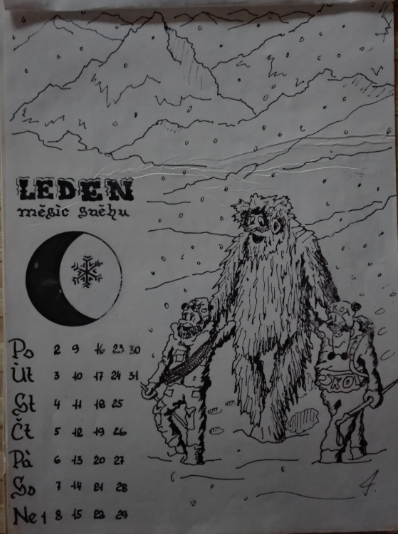 LEDEN
měsíc sněhu
Po 2 9 16 23 30
Út 3 10 17 24 31
St 4 11 18 25
Čt 5 12 19 26
Pá 6 13 20 27
So 7 14 21 28
Ne 1 8 15 22 29